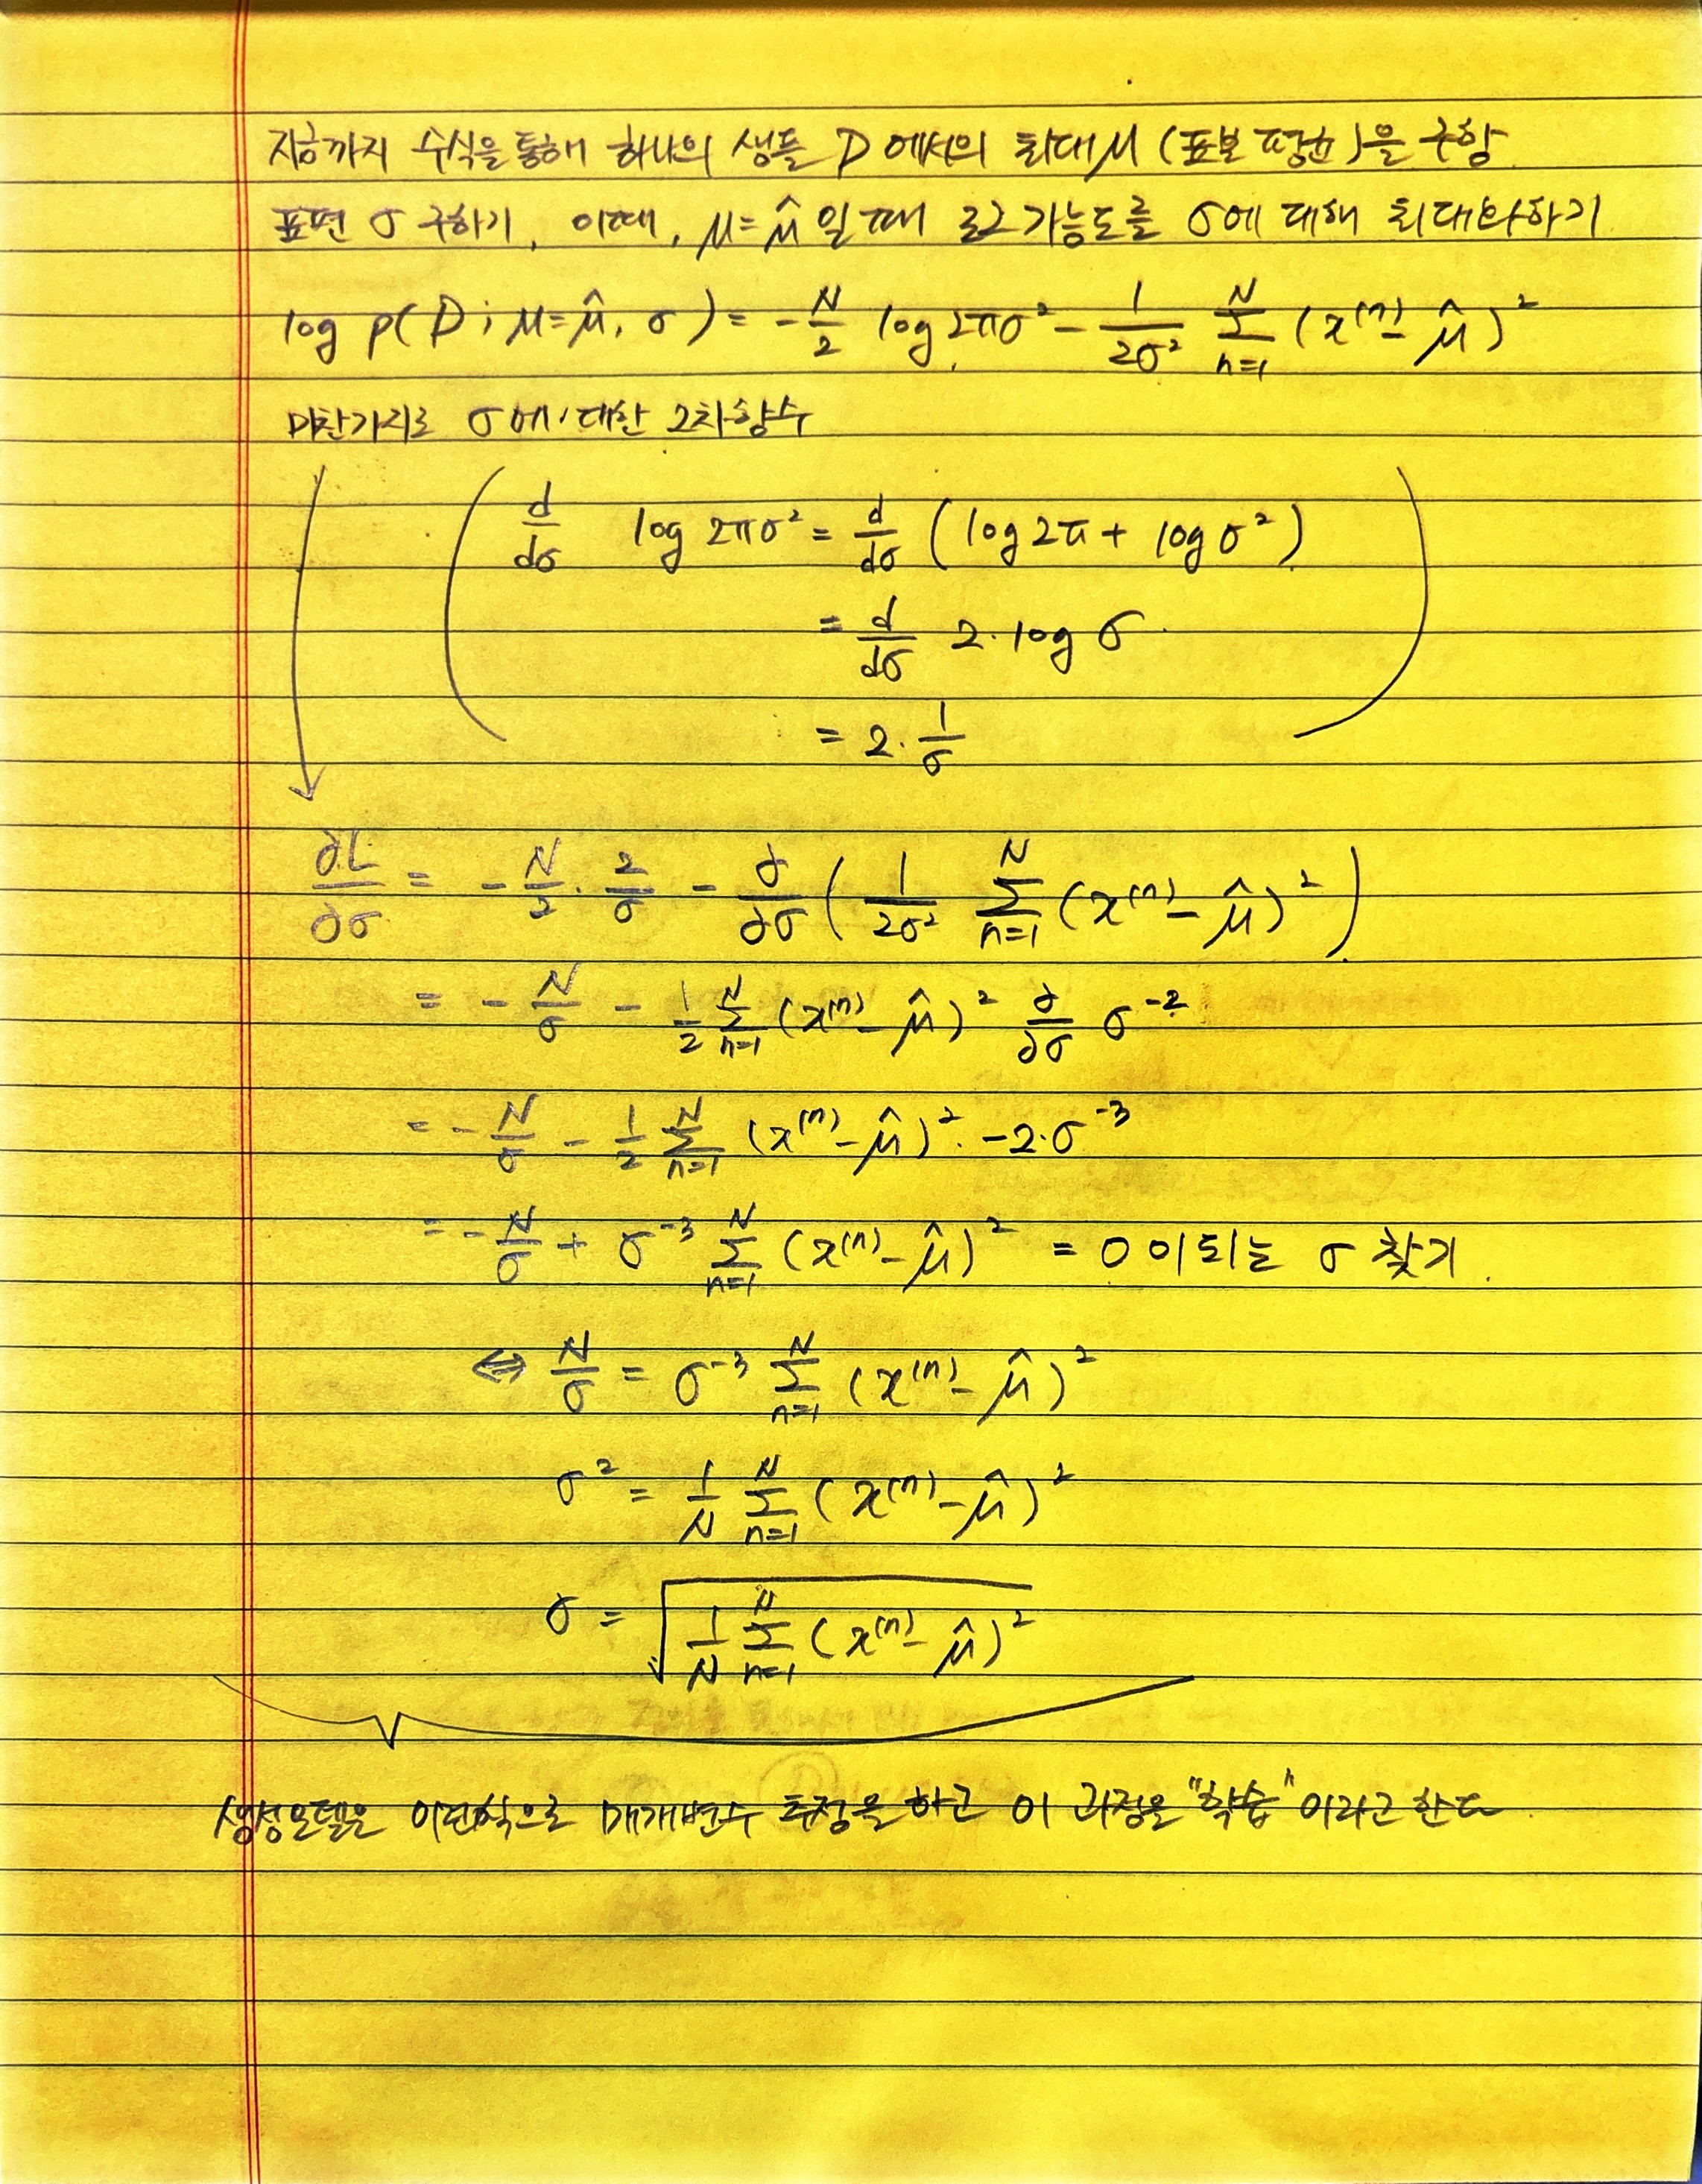 지금까지 수식을 통해 하나의 샘플 D에서의 최대 μ (표본 평균)을 구함
표편 σ 구하기, 이때, μ=μ̂ 일 때 로그 가능도를 σ에 대해 최대화하기
log p(D; μ=μ̂, σ) = -N/2 log 2πσ² - 1/2σ² Σ_{n=1}^{N} (x^{(n)} - μ̂)²
마찬가지로 σ에 대한 2차함수
d/dσ log 2πσ² = d/dσ (log 2π + log σ²)
= d/dσ 2·log σ
= 2·1/σ
∂L/∂σ = -N/2 · 2/σ - ∂/∂σ (1/2σ² Σ_{n=1}^{N} (x^{(n)} - μ̂)²)
= -N/σ - 1/2 Σ_{n=1}^{N} (x^{(n)} - μ̂)² ∂/∂σ σ^{-2}
= -N/σ - 1/2 Σ_{n=1}^{N} (x^{(n)} - μ̂)² · -2·σ^{-3}
= -N/σ + σ^{-3} Σ_{n=1}^{N} (x^{(n)} - μ̂)² = 0 이 되는 σ 찾기.
⇔ N/σ = σ^{-3} Σ_{n=1}^{N} (x^{(n)} - μ̂)²
σ² = 1/N Σ_{n=1}^{N} (x^{(n)} - μ̂)²
σ = √(1/N Σ_{n=1}^{N} (x^{(n)} - μ̂)²)
생성모델은 이런식으로 매개변수 추정을 하고 이 과정을 "학습"이라고 한다.